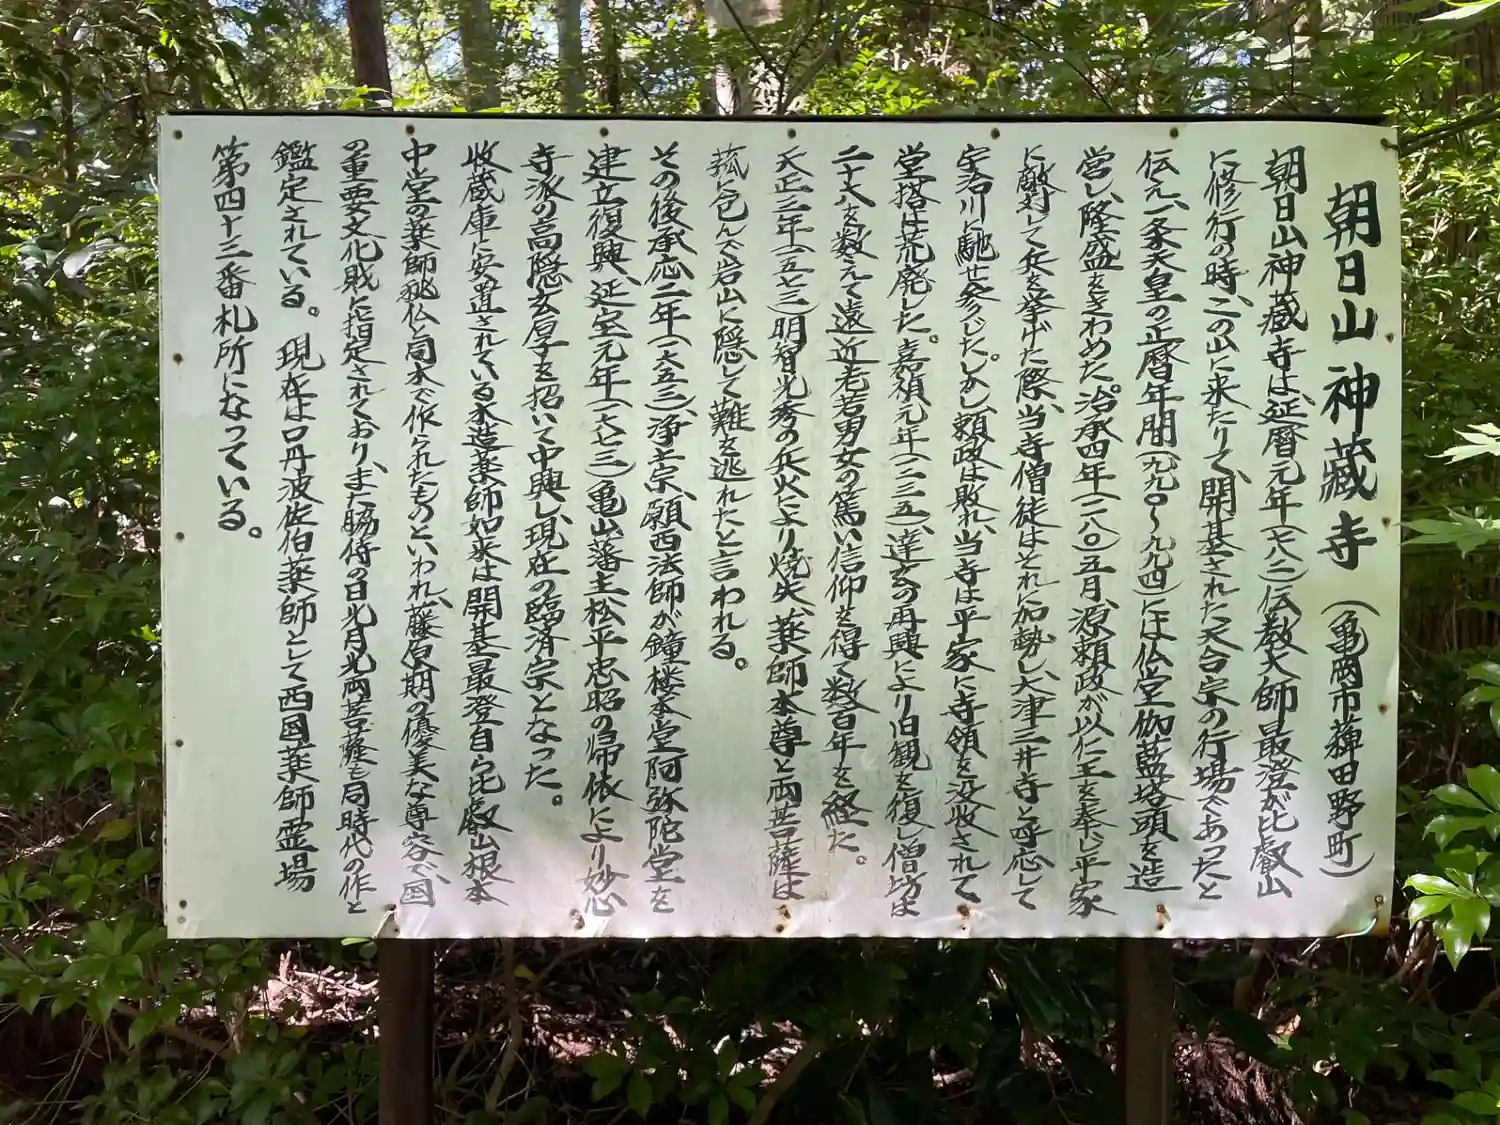 朝日山 神蔵寺 (亀岡市薭田野町)
朝日山神蔵寺は、延暦元年(七八二)伝教大師最澄が比叡山
に修行の時、この山に来たりて、開基された天台宗の行場であったと
伝え、一条天皇の正暦年間(九九〇〜九九四)には仏堂伽藍塔頭を造
営し、隆盛をきわめた。治承四年(一一八〇)五月、源頼政が以仁王を奉じ平家
に敵対して兵を挙げた際、当寺僧徒はそれに加勢し、大津三井寺と呼応して
宇治川に馳せ参じた。しかし、頼政は敗れ、当寺は平家に寺領を没収されて
堂塔は荒廃した。嘉禎元年(一二三五)、達玄の再興により旧観を復し僧坊は
二十六を数えて遠近老若男女の篤い信仰を得て数百年を経た。
天正三年(一五七三)明智光秀の兵火により焼失、薬師本尊と両菩薩は
菰に包んで岩山に隠して難を逃れたと言われる。
その後承応二年(一六五三)、浄土宗、願西法師が鐘楼本堂阿弥陀堂を
建立復興、延宝元年(一六七三)亀山藩主松平忠昭の帰依により妙心
寺派の高隠玄厚を招いて中興し、現在の臨済宗となった。
収蔵庫に安置されている木造薬師如来は開基最澄自ら比叡山根本
中堂の薬師秘仏と同木で作られたものといわれ、藤原期の優美な尊容で、国
の重要文化財に指定されており、また脇侍の日光月光両菩薩も同時代の作と
鑑定されている。現在は口丹波佐伯薬師として西国薬師霊場
第四十三番札所になっている。